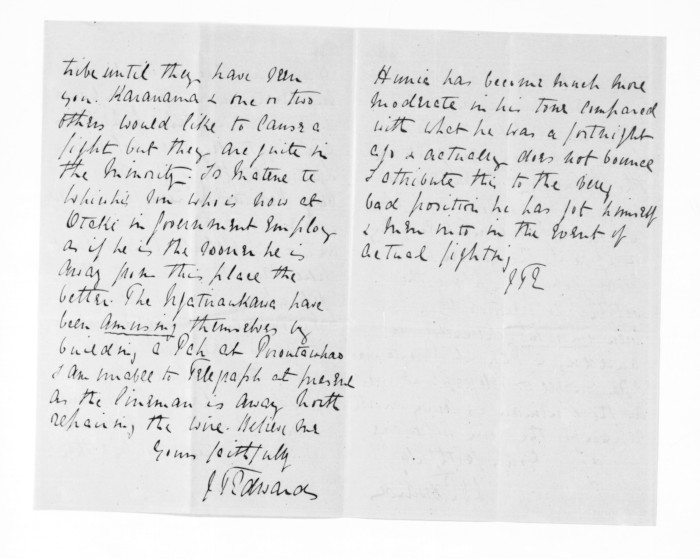 tribe until they have seen
you. Karanama & one or two
others would like to cause a
fight but they are quite in
the minority. Is Matene te
Whiwhi's son who is now at
Otaki in Government Employ
as if he is the sooner he is
away from this place the
better. The Ngatiraukawa have
been amusing themselves by
building a Pah at Poroutawhao
I am unable to Telegraph at present
as the lineman is away North
repairing the wire. Believe me
Yours faithfully
J T Edwards
Hunia has become much more
moderate in his tone compared
with what he was a fortnight
ago & actually does not bounce
I attribute this to the very
bad position he has got himself
& men into in the event of
actual fighting
JTE